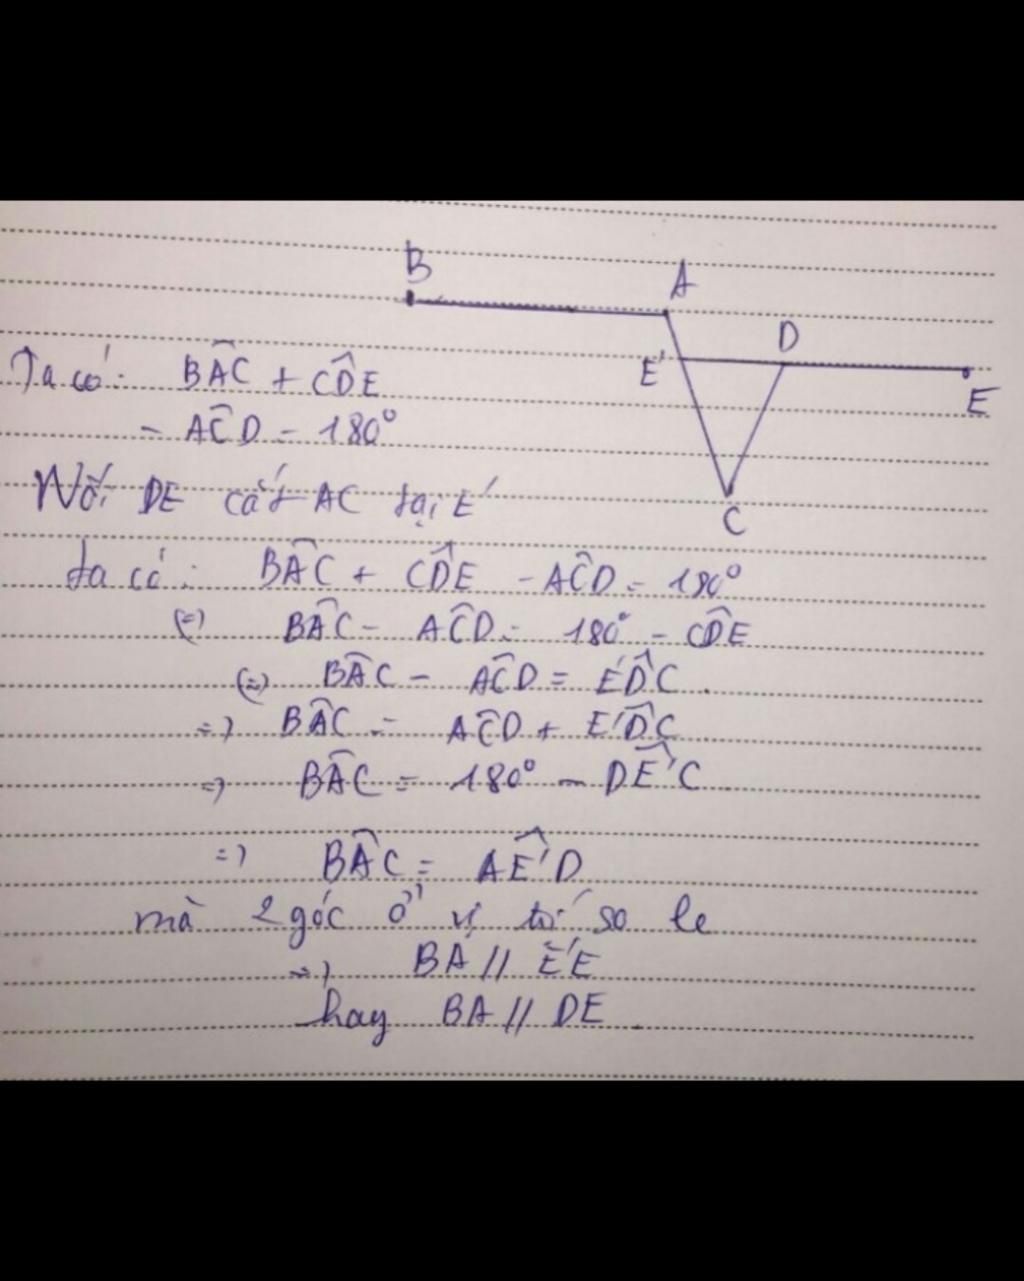 B
A
D
E'
E
C
Ta có: BAC^ + CDE^
- ACD^ = 180°
Nối DE cắt AC tại E'
ta có: BAC^ + CDE^ - ACD^ = 180°
(=) BAC^ - ACD^ = 180° - CDE^
(=) BAC^ - ACD^ = E'DC^.
=) BAC^ = ACD^ + E'DC^
=) BAC^ = 180° - DE'C^
=) BAC^ = AE'D^
mà 2 góc ở vị trí so le
=) BA // E'E
hay BA // DE.